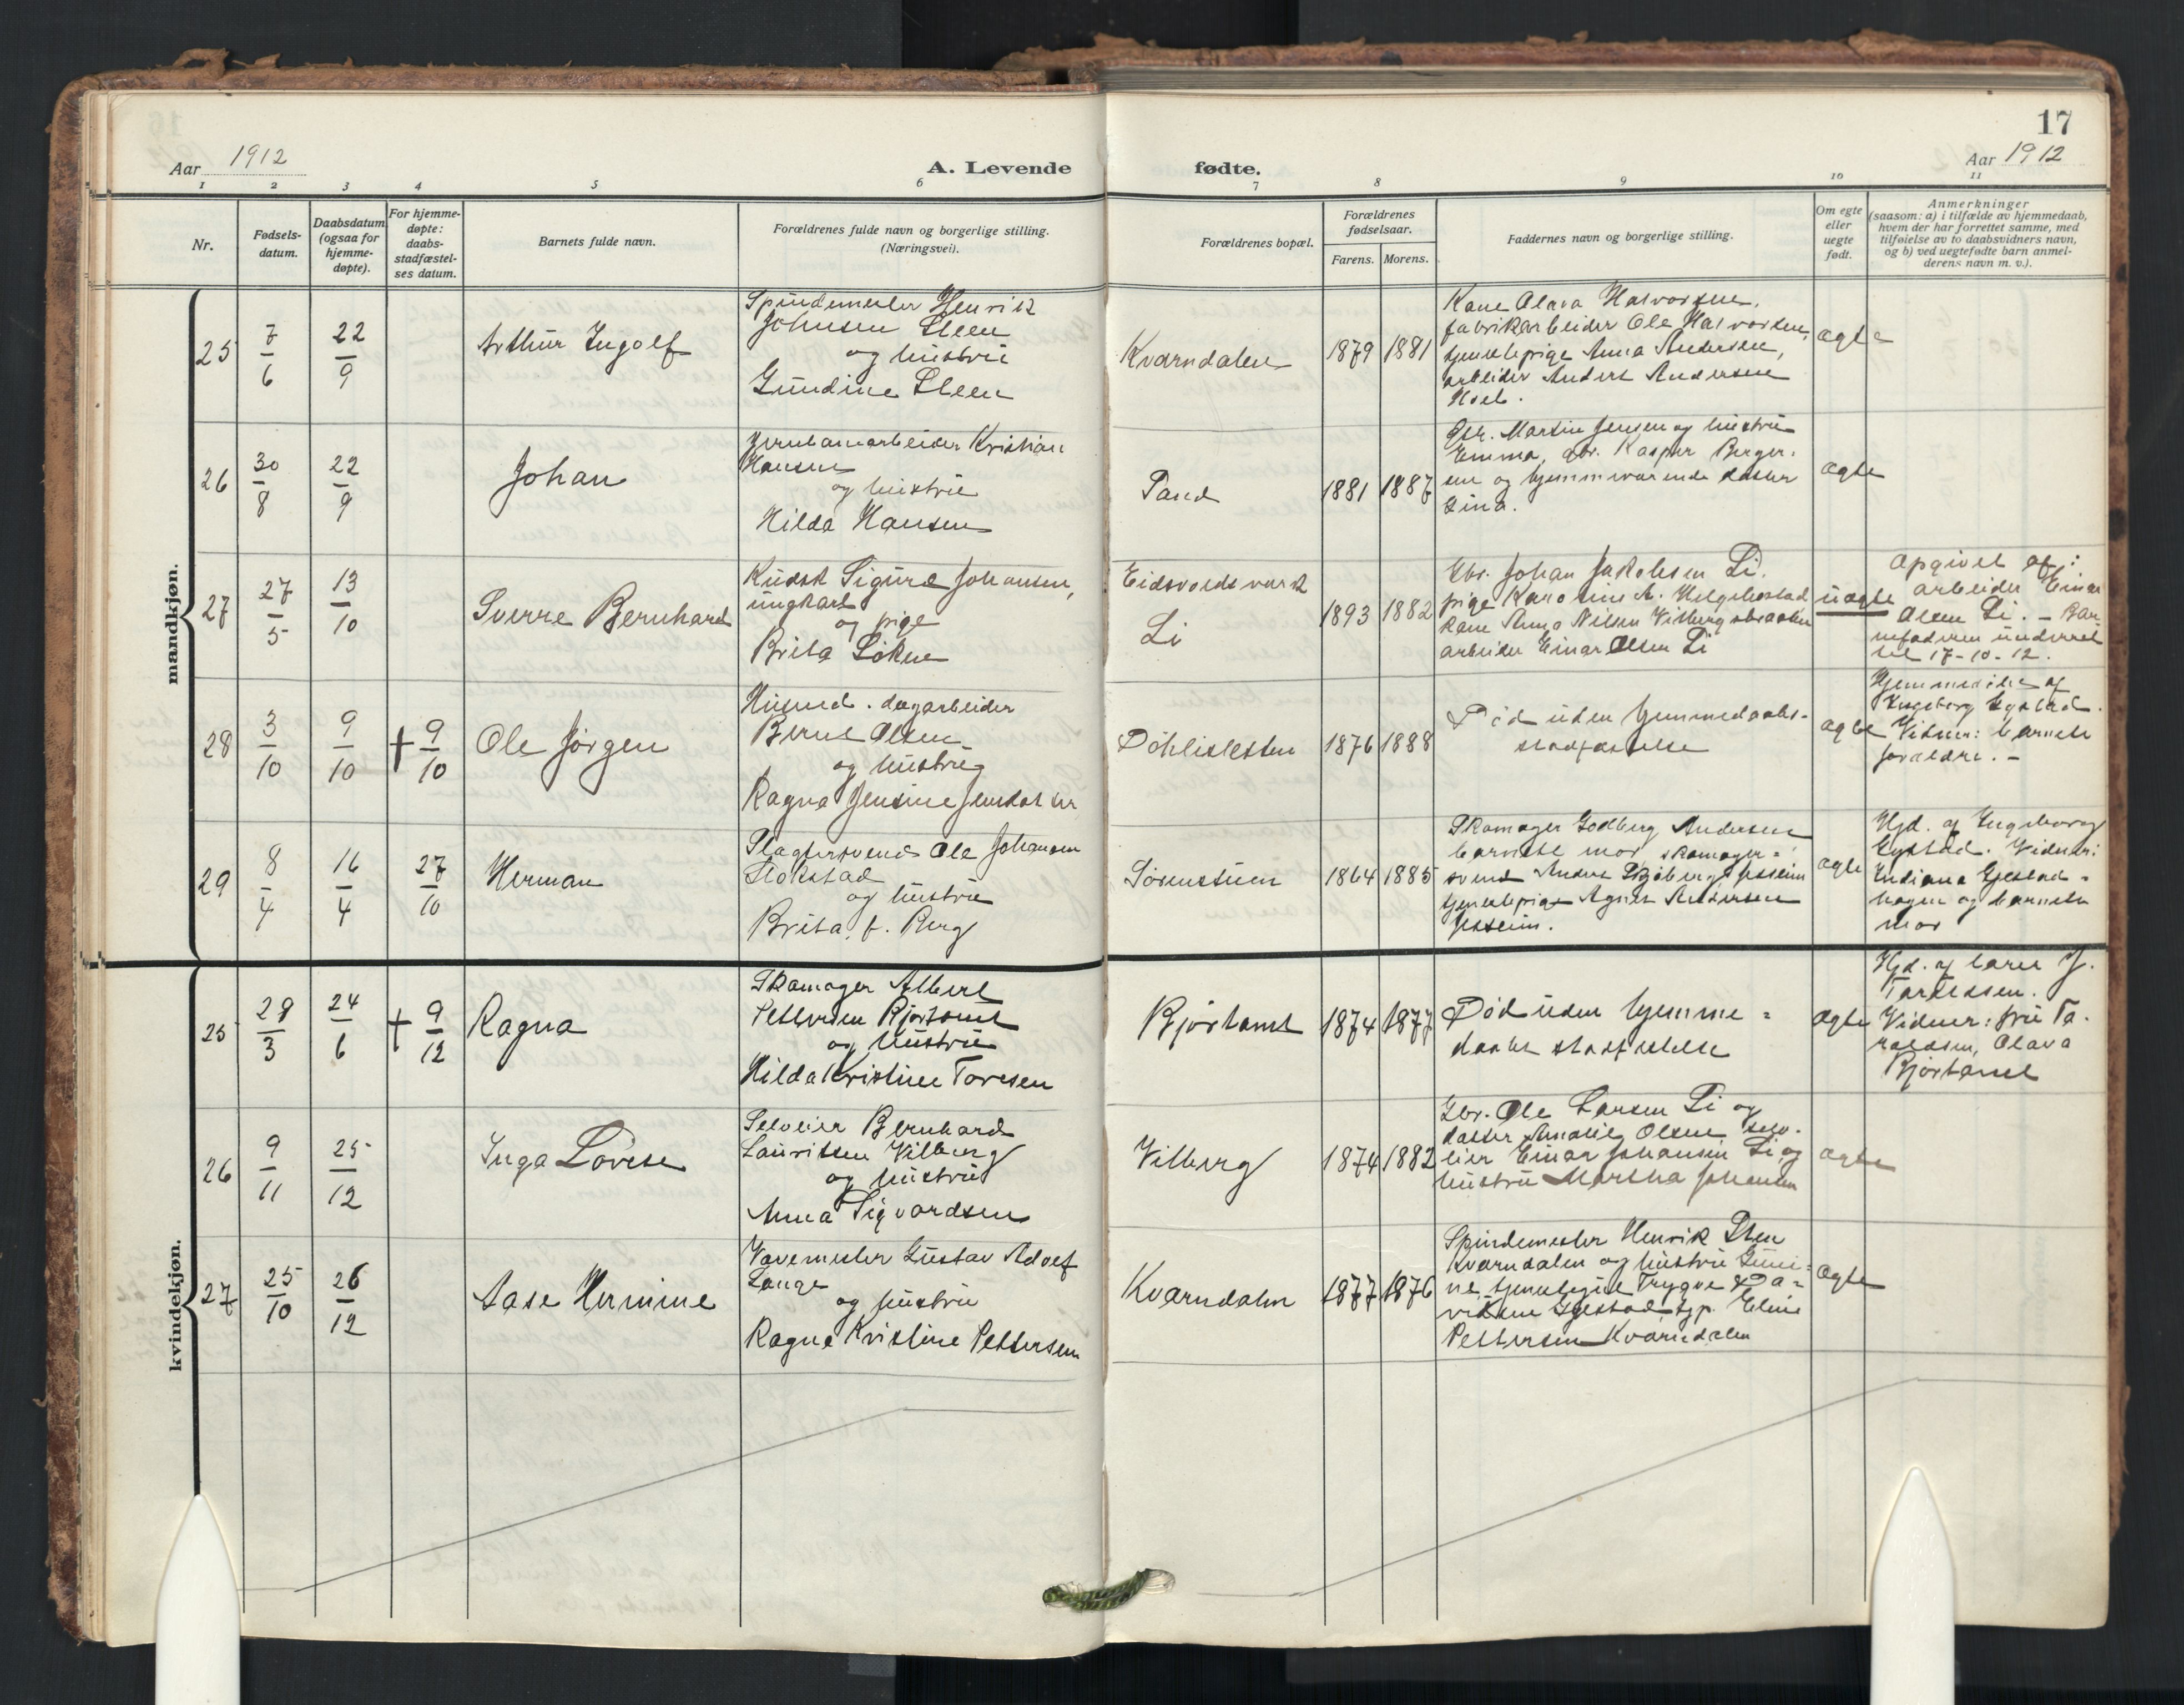 17
Aar 1912
A. Levende fødte.
Aar 1912
1 2 3 4 5 6 7 8 9 10 11
Nr.
Fødsels-
datum.
Daabsdatum
(ogsaa for
hjemme-
døpte).
For hjemme-
døpte:
daabs-
stadfæstel-
ses datum.
Barnets fulde navn.
Forældrenes fulde navn og borgerlige stilling.
(Næringsvei).
Forældrenes bopæl.
Forældrenes
fødselsaar.
Farens. Morens.
Faddernes navn og borgerlige stilling.
Om egte
eller
uegte
født.
Anmerkninger
(saasom: a) i tilfælde av hjemmedaab,
hvem der har forrettet samme, med
tilføielse av to daabsvidners navn,
og b) ved uegtefødte barn anmel-
derens navn m. v.).
mandkjøn.
25
7/6
22/9
Arthur Ingolf
Spindemester Henrik
Johnsen Steen
og hustru
Gundine Steen
Kværndalen
1879 1881
Kone Olava Halvorsen,
fabrikarbeider Ole Halvorsen,
tjenestepige Anna Andersen,
arbeider Anders Andersen
ægte
26
30/8
22/9
Johan
Jernbanearbeider Kristian
Hansen
og hustru
Hilda Hansen
1881 1887
Gbr. Martin Jensen og hustru
Emma, gbr. Kasper Berger-
sen og hjemmeværende datter
Gina.
ægte
27
27/5
13/10
Sverre Bernhard
Kudsk Sigurd Johansen,
ungkarl
og pige
Brita Løken
Eidsvolds værk
Li
1893 1882
Gbr. Johan Jakobsen Li,
pige Karoline A. Helgebostad
kone Anna Nilsen Vilbergsbraaten
arbeider Einar Olsen Li
uægte
Opgivet af:
arbeider Einar
Olsen Li. - Bar-
nefaderen underret-
tet 17-10-12.
28
3/10
9/10
† 9/10
Ole Jørgen
Husmd. dagarbeider
Bernt Olsen
og hustru
Ragna Jensine Jensdatter
Døhlieiesten
1876 1888
Død uden hjemmedaabs-
stadfæstelse
ægte
Hjemmedøbt af
Ingeborg Gystad.
Vidner: barnets
forældre. -
29
8/4
16/4
27/10
Herman
Slagtersvend Ole Johansen
Slokstad
og hustru
Brita, f. Berg
Sørenstuen
1864 1885
Skomager Godberg Andersen
barnets mor, skomager-
svend Anders Sjøberg Jessheim
tjenestepige Agnes Andersen
Jessheim.
ægte
Hjd. af Ingeborg
Gystad. Vidner:
Indiana Gjestad-
hagen og barnets
mor
kvindekjøn.
25
28/3
24/6
† 9/12
Ragna
Skomager Albert
Pettersen Bjørtomt
og hustru
Hilda Kristine Toresen
Bjørtomt
1874 1877
Død uden hjemme-
daabs stadfæstelse
ægte
Hjd. af
Vidner: fru Ta-
raldsen, Olava
Bjørtomt
26
9/11
25/12
Inga Lovise
Selveier Bernhard
Lauritsen Vilberg
og hustru
Anna Sigvardsen
Vilberg
1874 1882
Gbr. Ole Larsen Li og
datter Amalie Olsen, selv-
eier Einar Johansen Li og
hustru Martha Johansen
ægte
27
25/10
26/12
Aase Hermine
Vævemester Gustav Adolf
Lange
og hustru
Ragna Kristine Pettersen
Kværndalen
1877 1876
Spindemester Henrik Steen
Kværndalen og hustru Gundi-
ne, Trygve
Gystad tjp. Eline
Pettersen Kværndalen
ægte